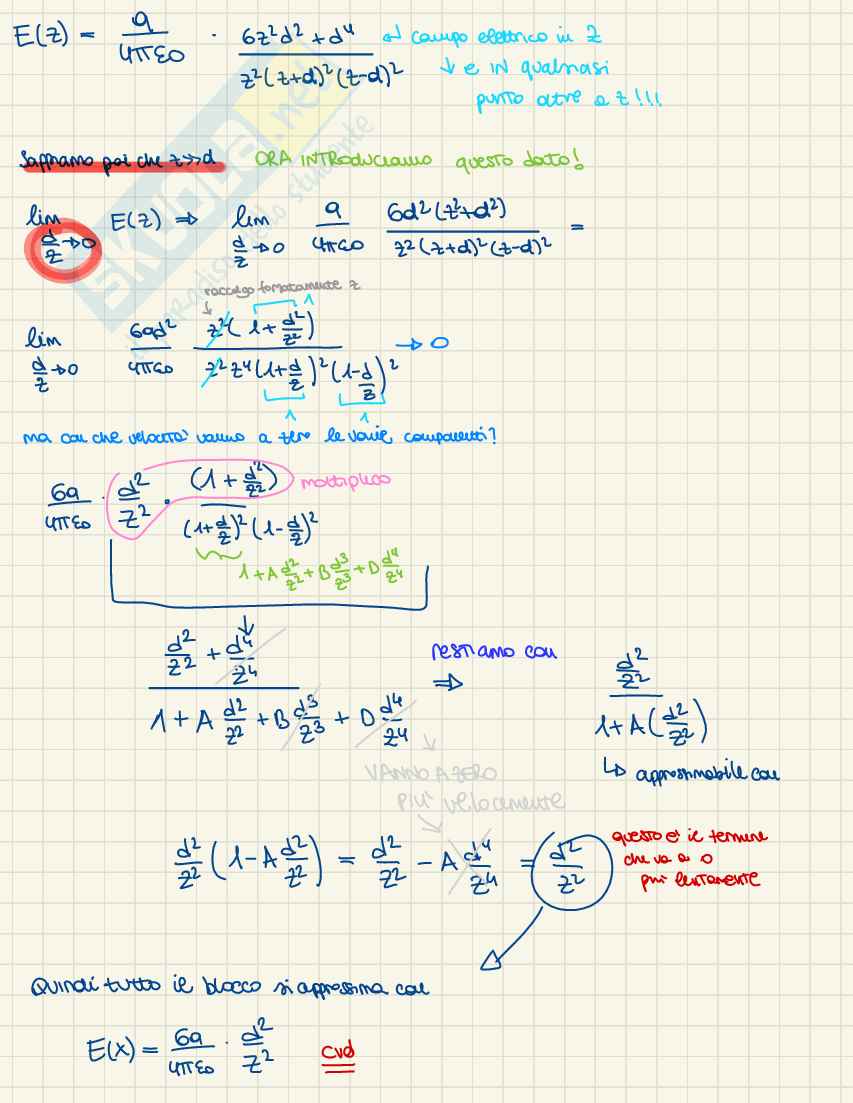 E(z) = q/4πε0 · (6z²d² + d⁴)/(z²(z+d)²(z-d)²) → campo elettrico in z
↓ e IN qualsiasi
punto oltre a z!!!
Sappiamo poi che z>>d ORA INTRODUCIAMO questo dato!
lim d/z→0 E(z) ⇒ lim d/z→0 q/4πε0 6d²(z²+d²)/(z²(z+d)²(z-d)²) =
raccolgo forzatamente z
lim d/z→0 6qd²/4πε0 z²(1+d²/z²)/(z² z⁴(1+d/z)²(1-d/z)²) → 0
1
1 1
ma con che velocità vanno a zero le varie componenti?
6q/4πε0 · d²/z² · (1+d²/z²)/((1+d/z)²(1-d/z)²) moltiplico
1+A d²/z²+B d³/z³+D d⁴/z⁴
(d²/z² + d⁴/z⁴)/(1+A d²/z² + B d³/z³ + D d⁴/z⁴) restiamo con ⇒ (d²/z²)/(1+A(d²/z²))
VANNO A ZERO
PIU' velocemente
↳ approssimabile con
d²/z² (1-A d²/z²) = d²/z² - A d⁴/z⁴ = d²/z²
questo è il termine
che va a 0
più lentamente
Quindi tutto il blocco si approssima con
E(x) = 6q/4πε0 · d²/z² cvd
SKUOLA.net
il paradiso dello studente